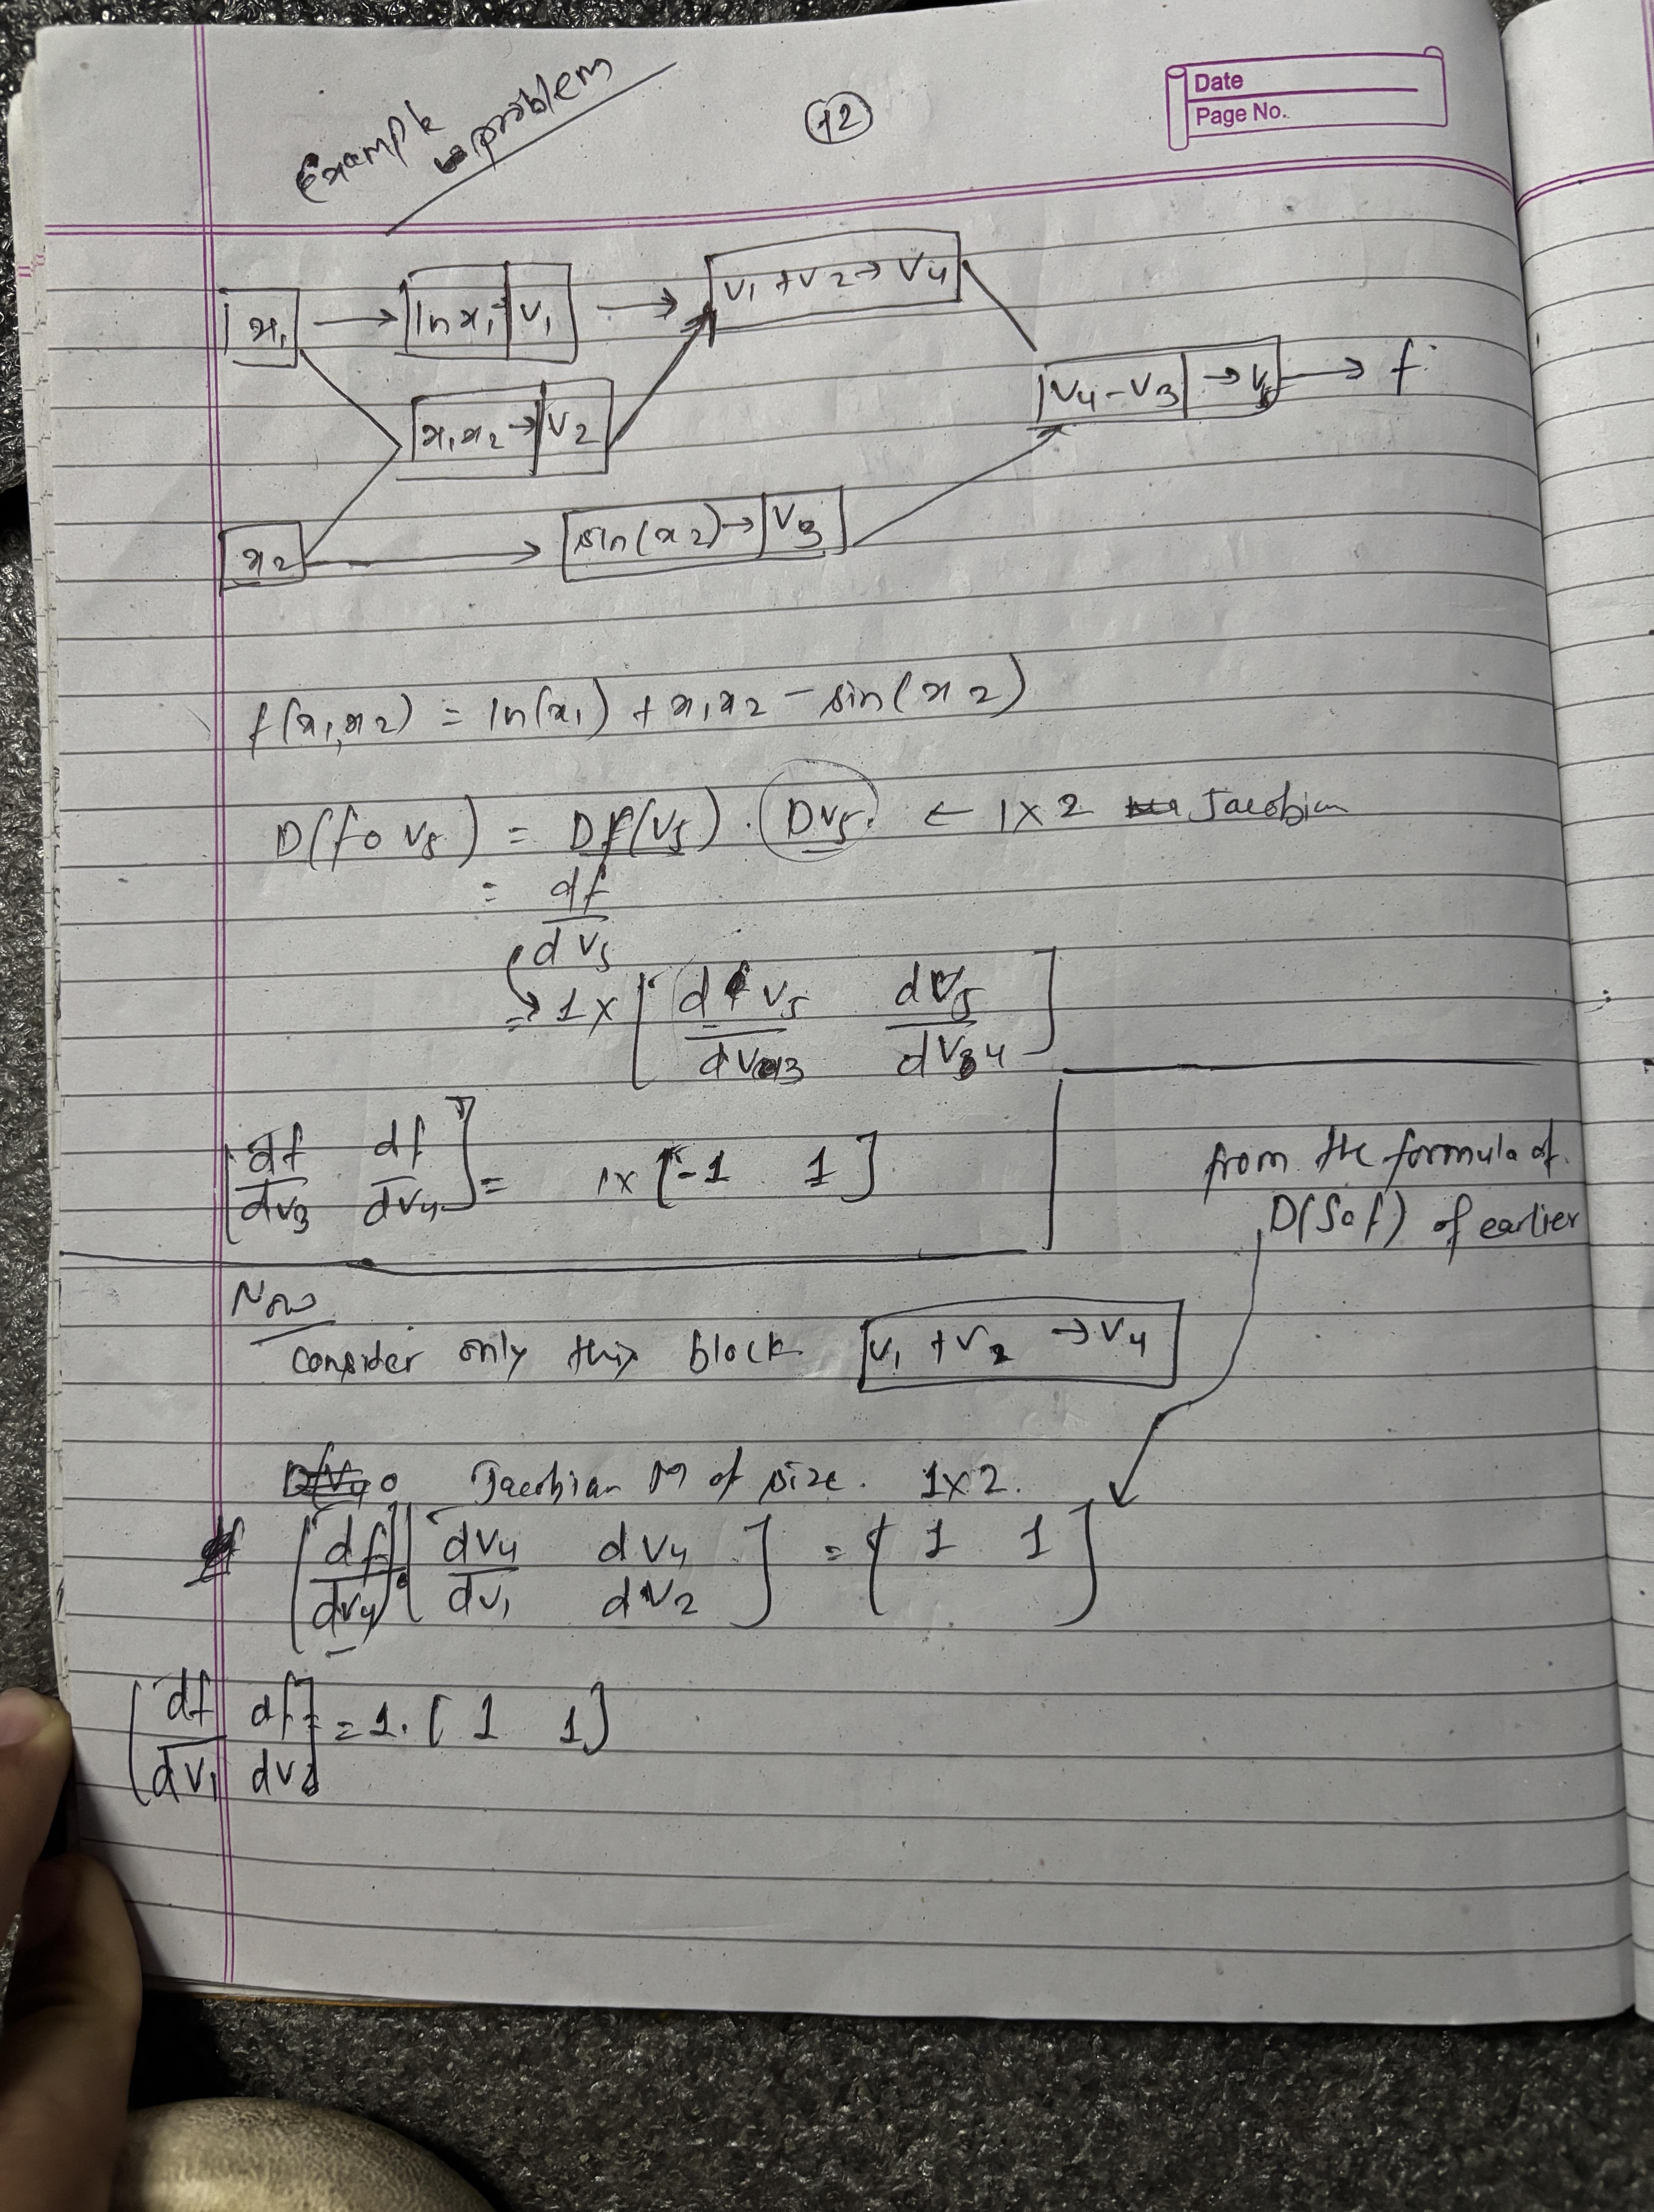 Example problem
12
Date
Page No.
x₁ → ln x₁ → v₁ → v₁ + v₂ → v₄
x₁x₂ → v₂
v₄ - v₃ → v₅ → f
x₂ → sin(x₂) → v₃
f(x₁, x₂) = ln(x₁) + x₁x₂ - sin(x₂)
D(f o v₅) = Df(v₅) . Dv₅ ← 1 x 2 Jacobian
= df/dv₅
→ 1 x [ dv₅/dv₃ dv₅/dv₄ ]
[ df/dv₃ df/dv₄ ] = 1 x [ -1 1 ]
from the formula of
D(S o f) of earlier
Now
consider only this block v₁ + v₂ → v₄
Jacobian M of size. 1x2.
[ df/dv₄ ] . [ dv₄/dv₁ dv₄/dv₂ ] = [ 1 1 ]
[ df/dv₁ df/dv₂ ] = 1 . [ 1 1 ]